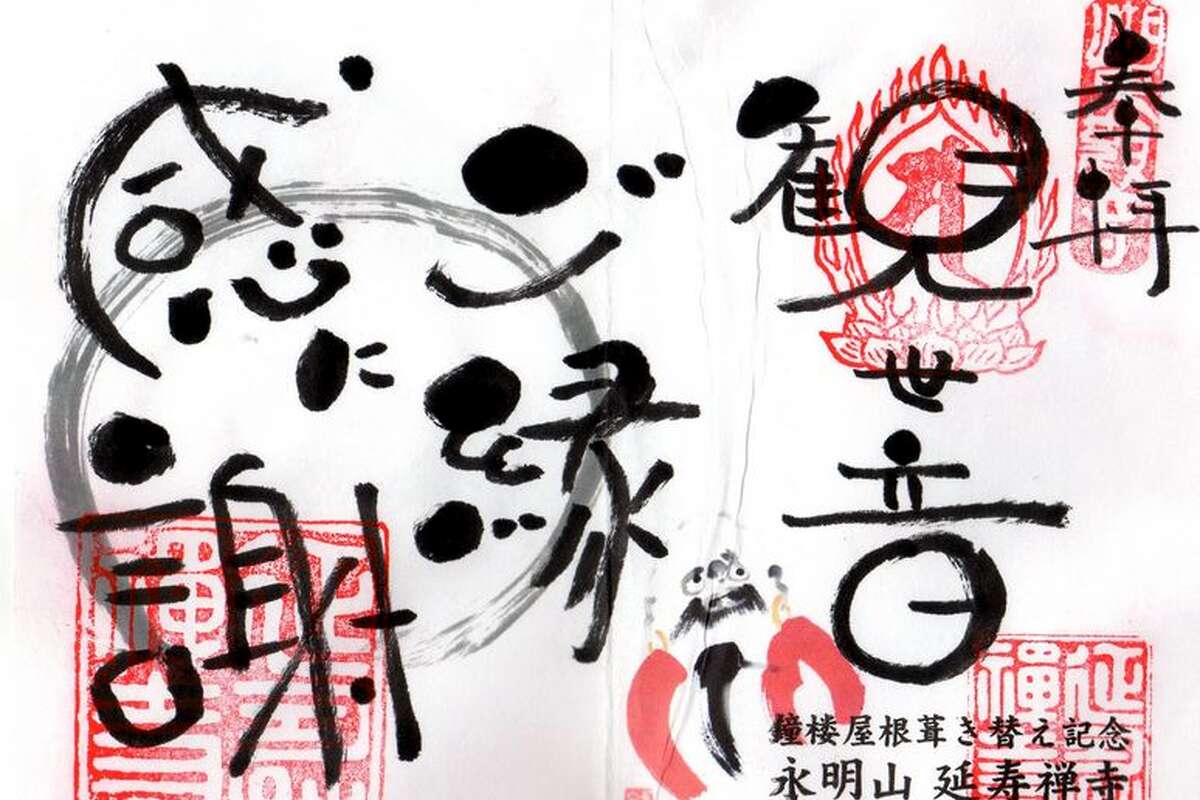 奉拝
観世音
ご縁
に
感謝
鐘楼屋根葺き替え記念
永明山 延寿禅寺
延寿禅寺